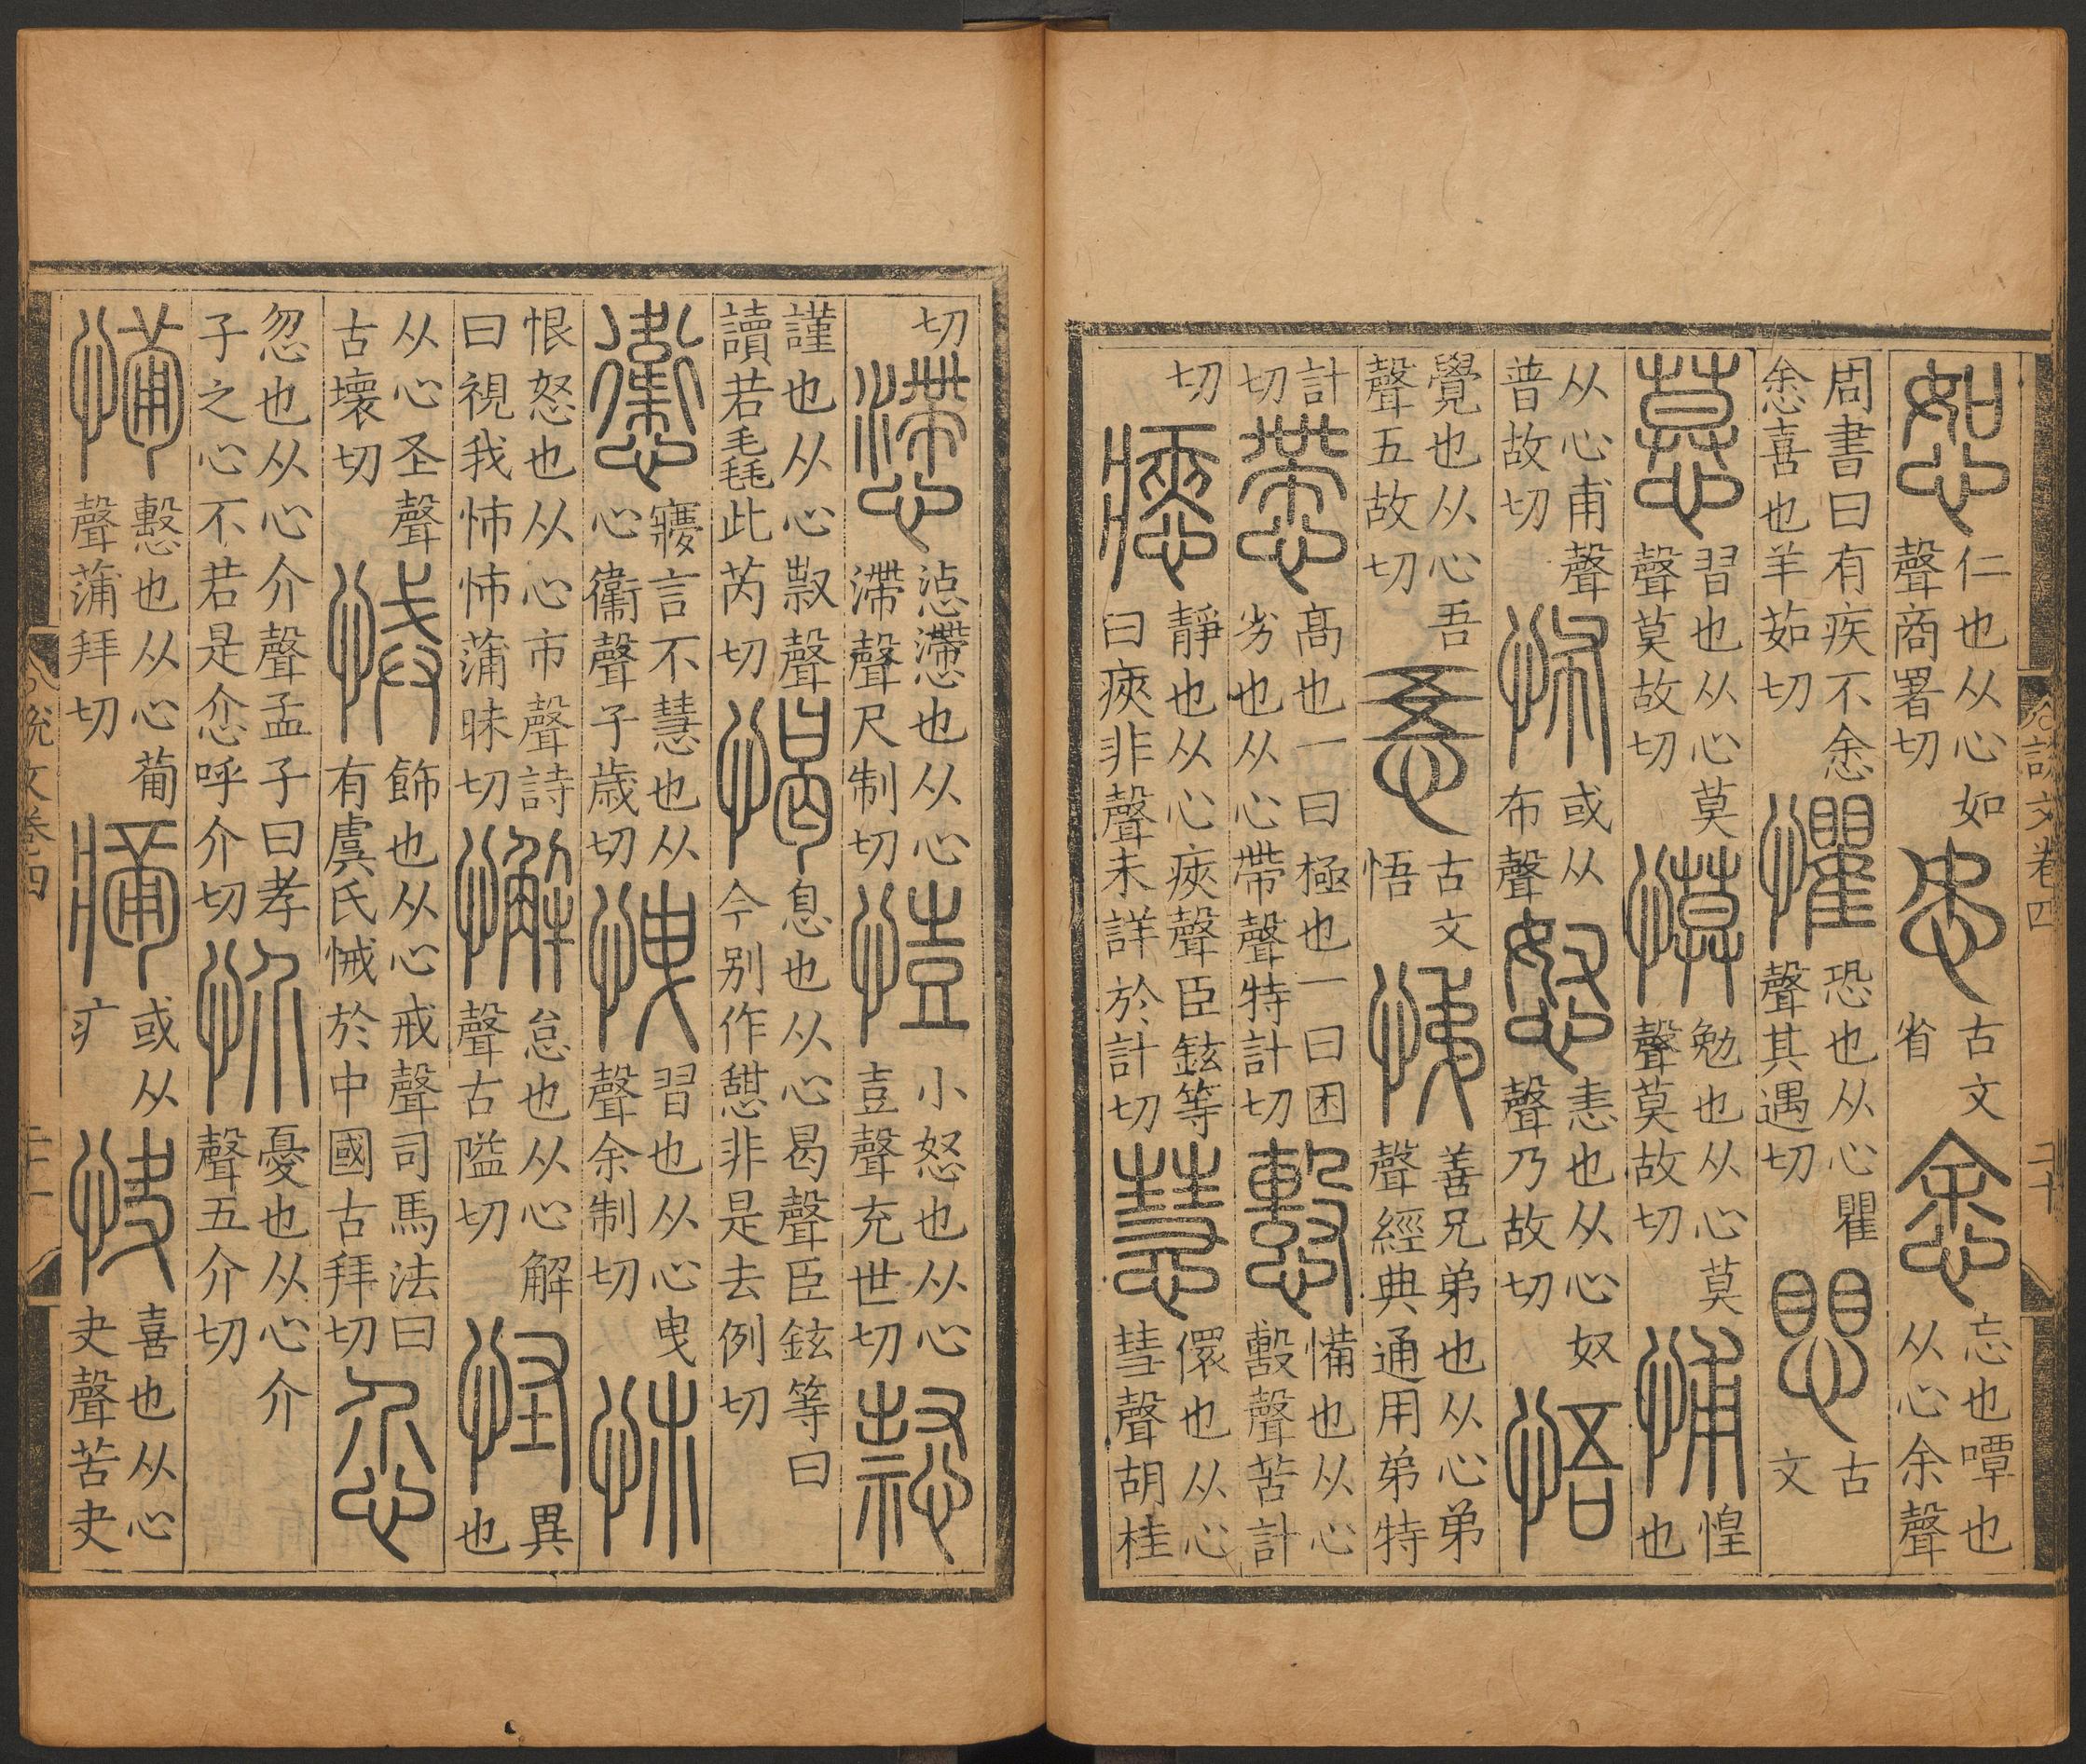 說文卷四 二十
恕仁也从心如聲商署切㣽古文省悆忘也嘾也从心余聲
周書曰有疾不悆悆喜也羊茹切懼恐也从心瞿聲其遇切古文
慕習也从心莫聲莫故切慔勉也从心莫聲莫故切悑惶也
从心甫聲普故切怖或从布聲怒恚也从心奴聲乃故切悟
覺也从心吾聲五故切㤳古文悟悌善兄弟也从心弟聲經典通用弟特
計切慸高也一曰極也一曰困劣也从心帶聲特計切㦅憊也从心毄聲苦計
切瘱靜也从心㾜聲臣鉉等曰㾜非聲未詳於計切慧儇也从心彗聲胡桂
切懘㤴懘也从心滯聲尺制切小怒也从心壴聲充世切
謹也从心㕢聲讀若毳此芮切愒息也从心曷聲臣鉉等曰今别作憩非是去例切
㦣寱言不慧也从心衞聲子歲切習也从心曳聲余制切怖
恨怒也从心巿聲詩曰視我怖怖蒲昧切懈怠也从心解聲古隘切怪異也
从心圣聲古壞切悈飾也从心戒聲司馬法曰有虞氏悈於中國古拜切
忽也从心介聲孟子曰孝子之心不若是呼介切忦憂也从心介聲五介切
也从心葡聲蒲拜切或从疒快喜也从心夬聲苦夬
說文卷四 二十一